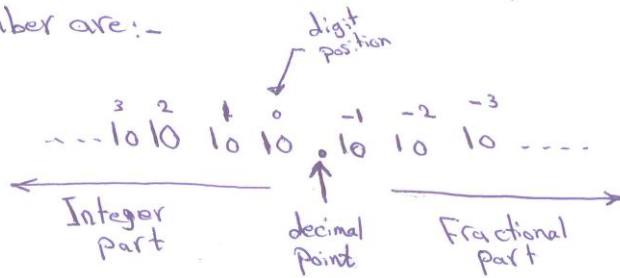 ber are:-
digit
position
.... 10³ 10² 10¹ 10⁰ . 10⁻¹ 10⁻² 10⁻³ ....
Integer
part
decimal
point
Fractional
part